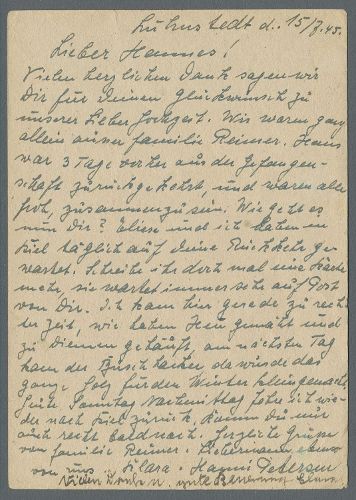 Luhnstedt d. 15/7.45.
Lieber Hannes!
Vielen herzlichen Dank sagen wir
Dir für Deinen Glückwunsch zu
unserer Silberhochzeit. Wir waren ganz
allein ausser Familie Reimer. Hans
war 3 Tage vorher aus der Gefangen-
schaft zurückgekehrt, und waren alle
froh, zusammen zu sein. Wie geht es
nun Dir? Eliese und ich haben in
Kiel täglich auf Deine Rückkehr ge-
wartet. Schreibe ihr doch mal eine Karte
mehr, sie wartet immer sehr auf Post
von Dir. Ich kam hier gerade zu recht
der Zeit, wir haben Heu gemäht und
zu Diemen gehäuft, am nächsten Tag
kam der Buschhacker, da wurde das
ganze Holz für den Winter klein gemacht.
Heute Sonntag Nachmittag fahre ich wie-
der nach Kiel zurück. Komm Du nur
auch recht bald nach. Herzliche Grüsse
von Familie Reimer. ebenso
von uns Klara. Hanni Petersen
Vielen Dank u. gute